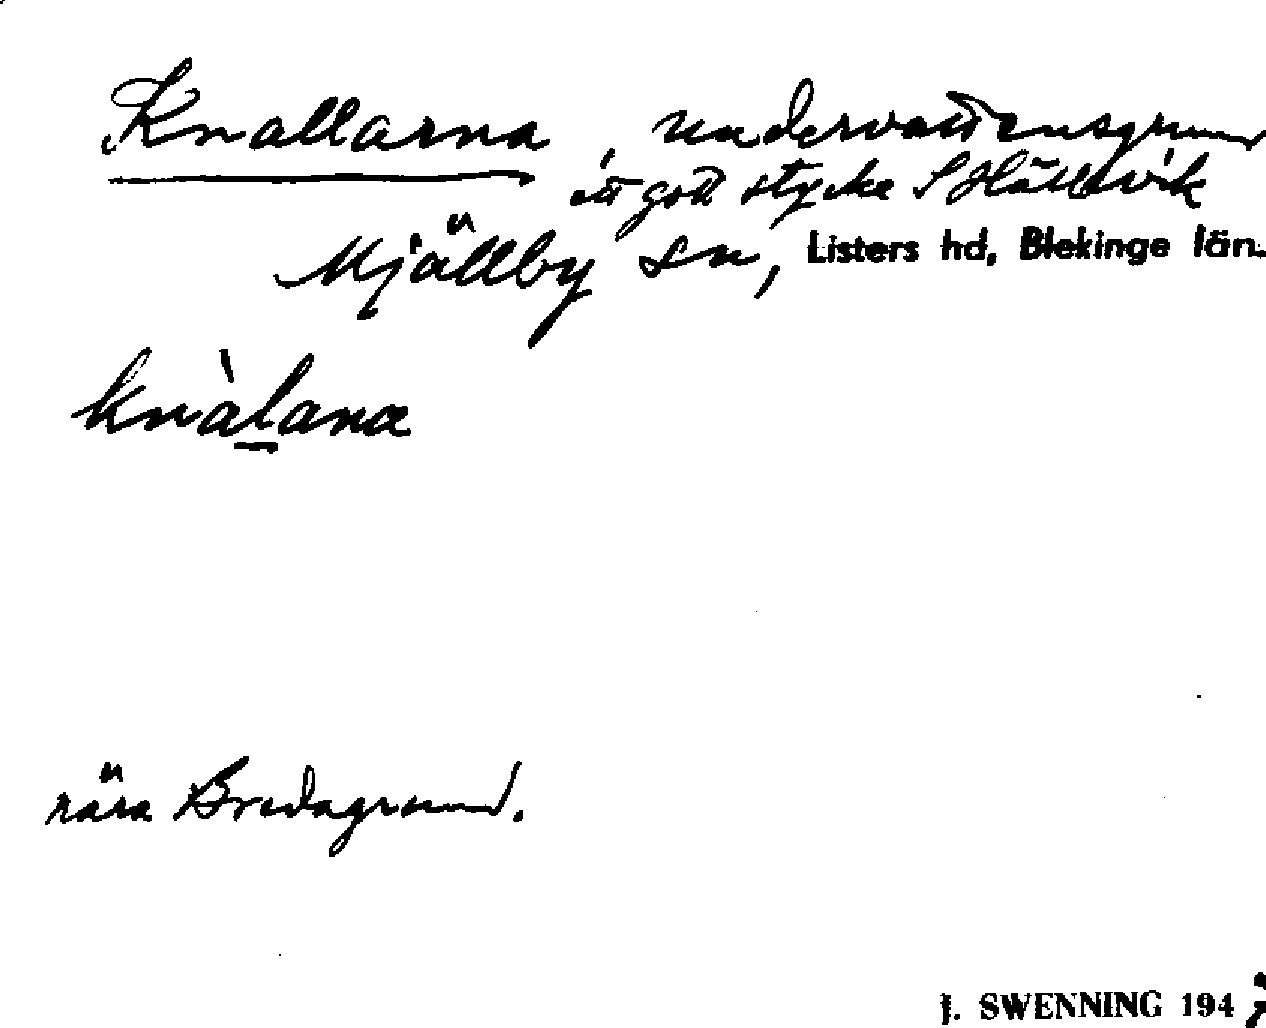 Knallarna, undervattensgrund
ett gott stycke S Hällevik
Mjällby sn, Listers hd, Blekinge län.
knàlana
nära Bredagrund.
J. SWENNING 194